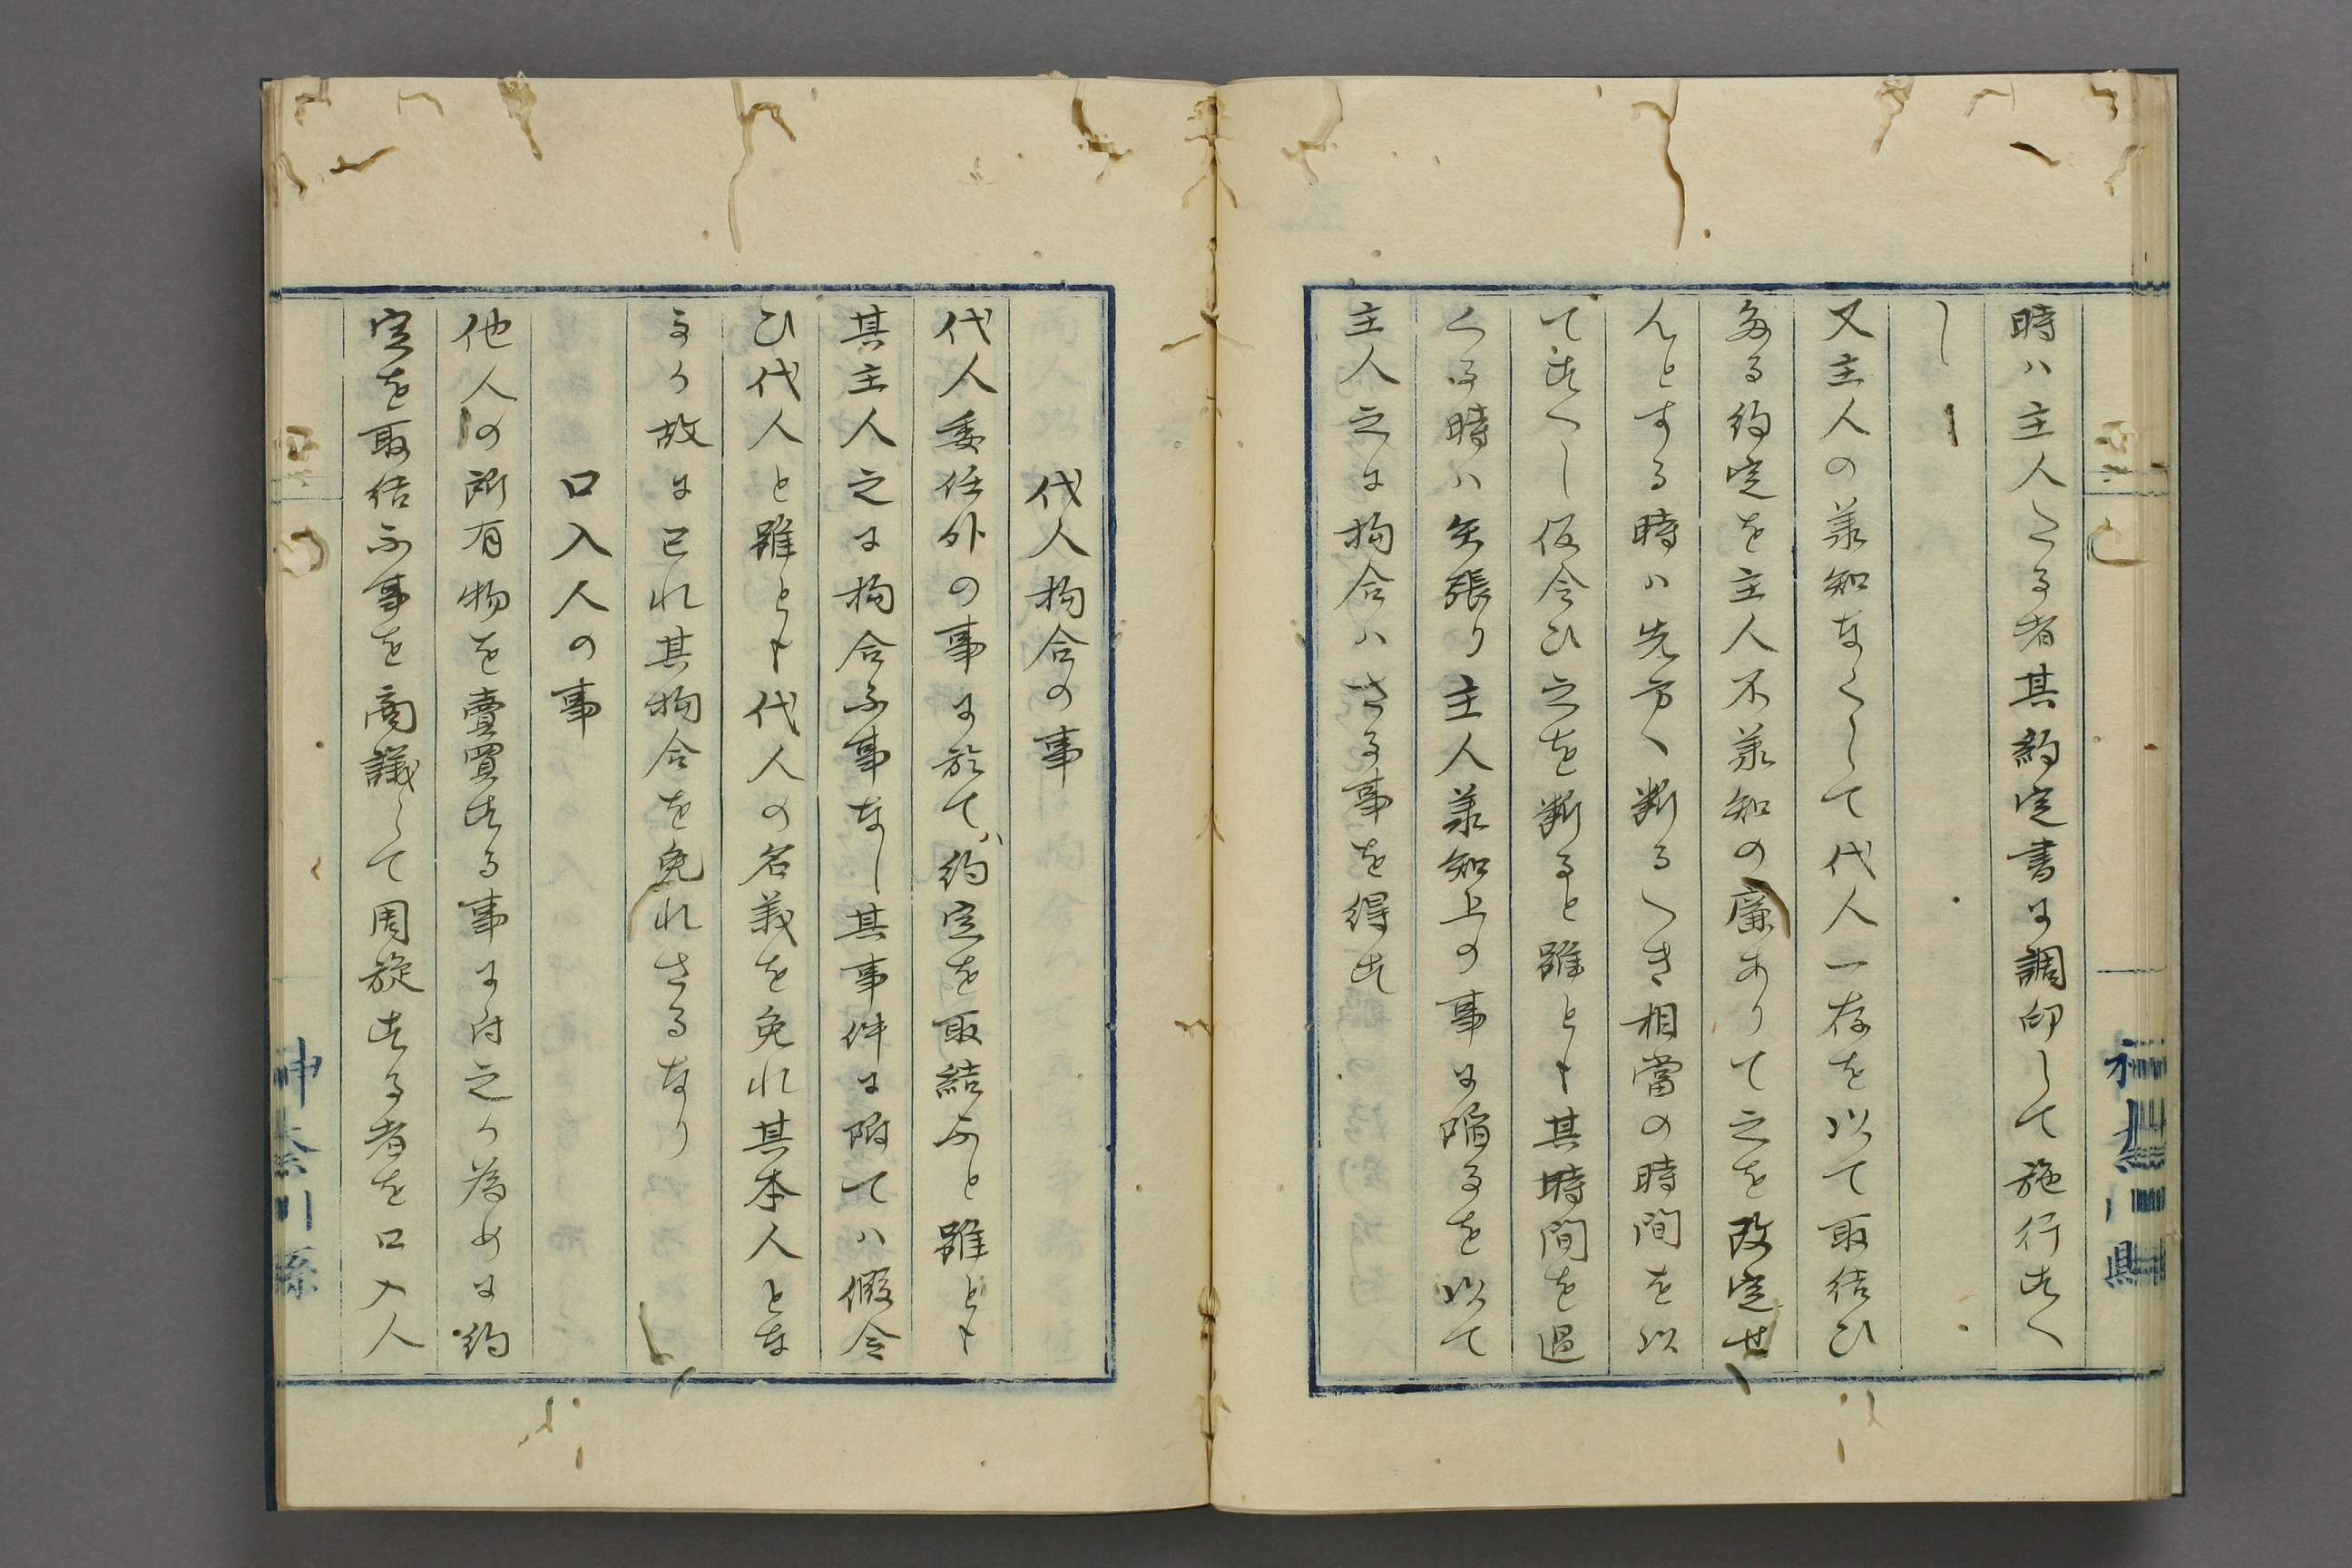 時ハ主人たる者其約定書に調印して施行すへ
し
又主人の承知なくして代人一存を以て取結ひ
たる約定を主人不承知の廉ありて之を改定せ
んとする時ハ先方へ断るへき相當の時間を以
てすへし仮令ひ之を断ると雖とも其時間を過
くる時ハ矢張り主人承知上の事に陥るを以て
主人之に拘合ハさる事を得す
神奈川縣
代人拘合の事
代人委任外の事に於て約定を取結ふと雖とも
其主人之に拘合ふ事なし其事件に附てハ假令
ひ代人と雖とも代人の名義を免れ其本人とな
るか故に已れ其拘合を免れさるなり
口入人の事
他人の所有物を賣買する事に付之か為めに約
定を取結ふ事を商議して周旋する者を口入人
神奈川縣